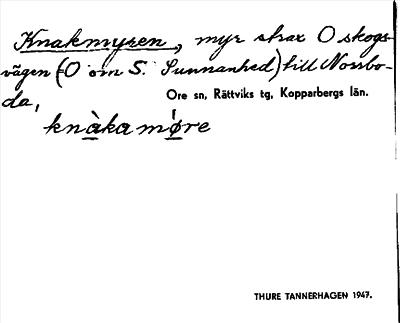 Knakmyren, myr strax O skogs-
vägen (O om S. Sunnanhed) till Norrbo-
da,
Ore sn, Rättviks tg, Kopparbergs län.
knàkamøre
THURE TANNERHAGEN 1947.